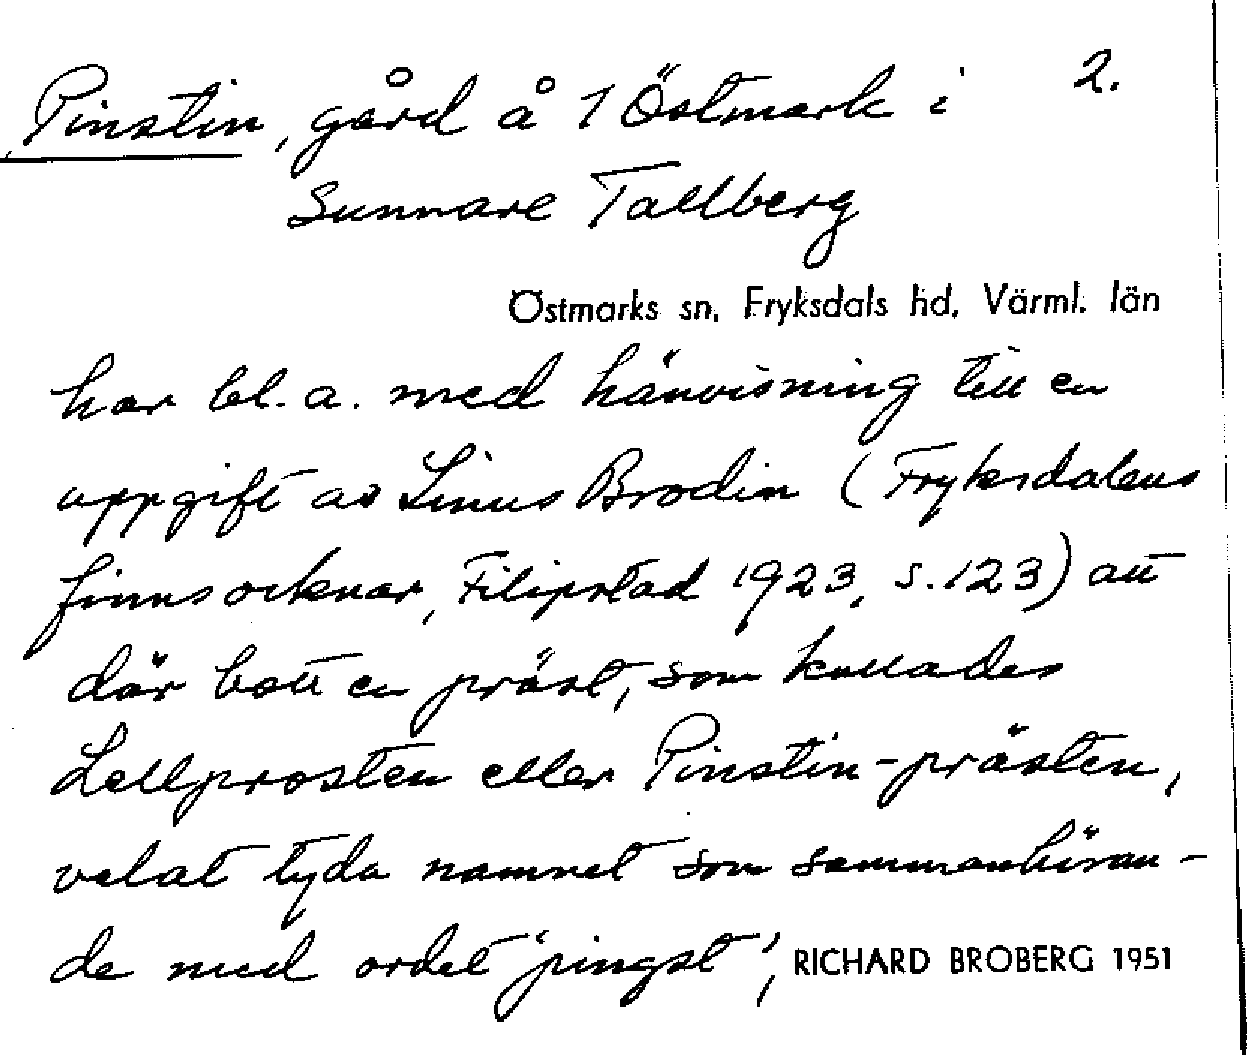 Pinstin, gård å 1 Östmark i 2.
Sunnare Tallberg
Östmarks sn, Fryksdals hd, Värml. län
har bl.a. med hänvisning till en
uppgift av Linus Brodin (Fryksdalens
finnsocknar, Filipstad 1923, s.123) att
där bott en präst, som kallades
Lellprosten eller Pinstin-prästen,
velat tyda namnet som sammanhöran-
de med ordet 'pingst',
RICHARD BROBERG 1951